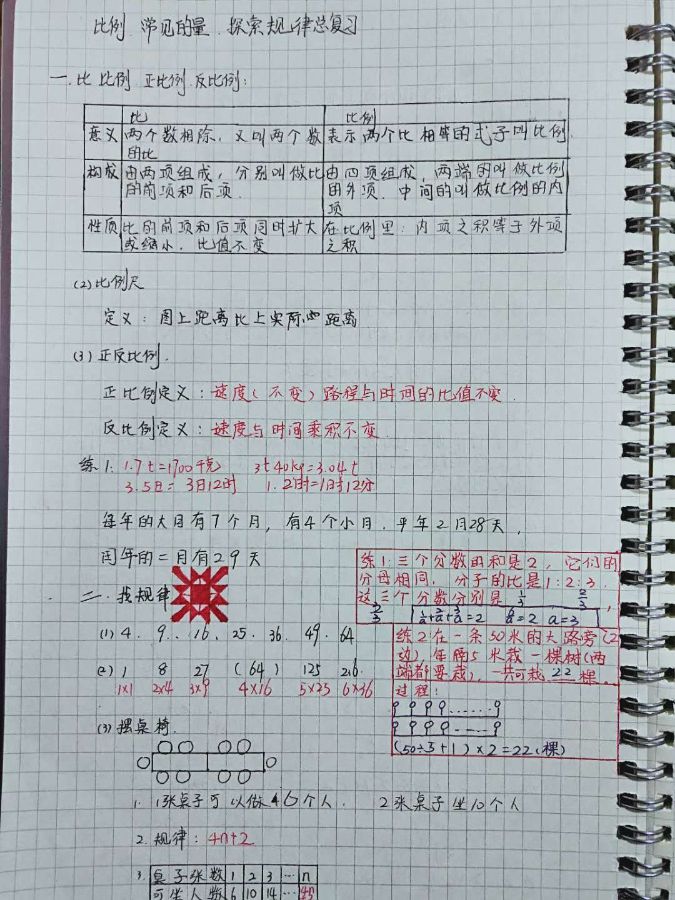 比例 常见的量. 探索规律总复习
一. 比 比例 正比例. 反比例:
比 比例
意义 两个数相除, 又叫两个数的比 表示两个比相等的式子叫比例.
构成 由两项组成, 分别叫做比的前项和后项. 由四项组成, 两端的叫做比例的外项. 中间的叫做比例的内项
性质 比的前项和后项同时扩大或缩小, 比值不变 在比例里: 内项之积等于外项之积
(2) 比例尺
定义: 图上距离比上实际距离
(3) 正反比例.
正比例定义: 速度(不变) 路程与时间的比值不变.
反比例定义: 速度与时间乘积不变.
练1: 1.7t=1700千克 3t40kg=3.04t
3.5日= 3日12时 1.2时=1时12分
每年的大月有7个月, 有4个小月. 平年2月28天,
闰年的二月有29天
二. 找规律
(1) 4. 9. 16. 25. 36. 49. 64
(2) 1 8 27 (64) 125 216
1×1 2×4 3×9 4×16 5×25 6×36
(3) 摆桌椅.
1. 1张桌子可以做6个人. 2张桌子坐10个人
2. 规律: 4n+2
3. 桌子张数 1 2 3 … n
可坐人数 6 10 14 …
练1: 三个分数的和是2, 它们的
分母相同. 分子的比是1:2:3.
这三个分数分别是 1/3 2/3,
3/3 1/a+2/a+3/a=2 6/a=2 a=3
练2 在一条50米的大路旁(2
边) 每隔5米栽一棵树(两
端都要栽), 一共可栽 22 棵.
过程:
(50÷5+1)×2=22(棵)